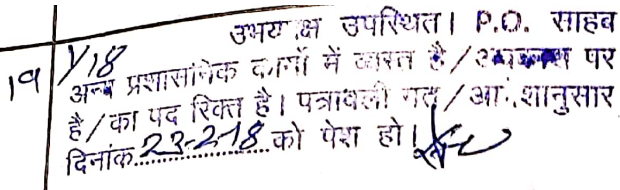 उभय पक्ष उपस्थित। P.O. साहब
19/1/18 अन्य प्रशासनिक कार्यों में व्यस्त है/अवकाश पर
है/का पद रिक्त है। पत्रावली गत/आदेशानुसार
दिनांक 23-2-18 को पेश हो।